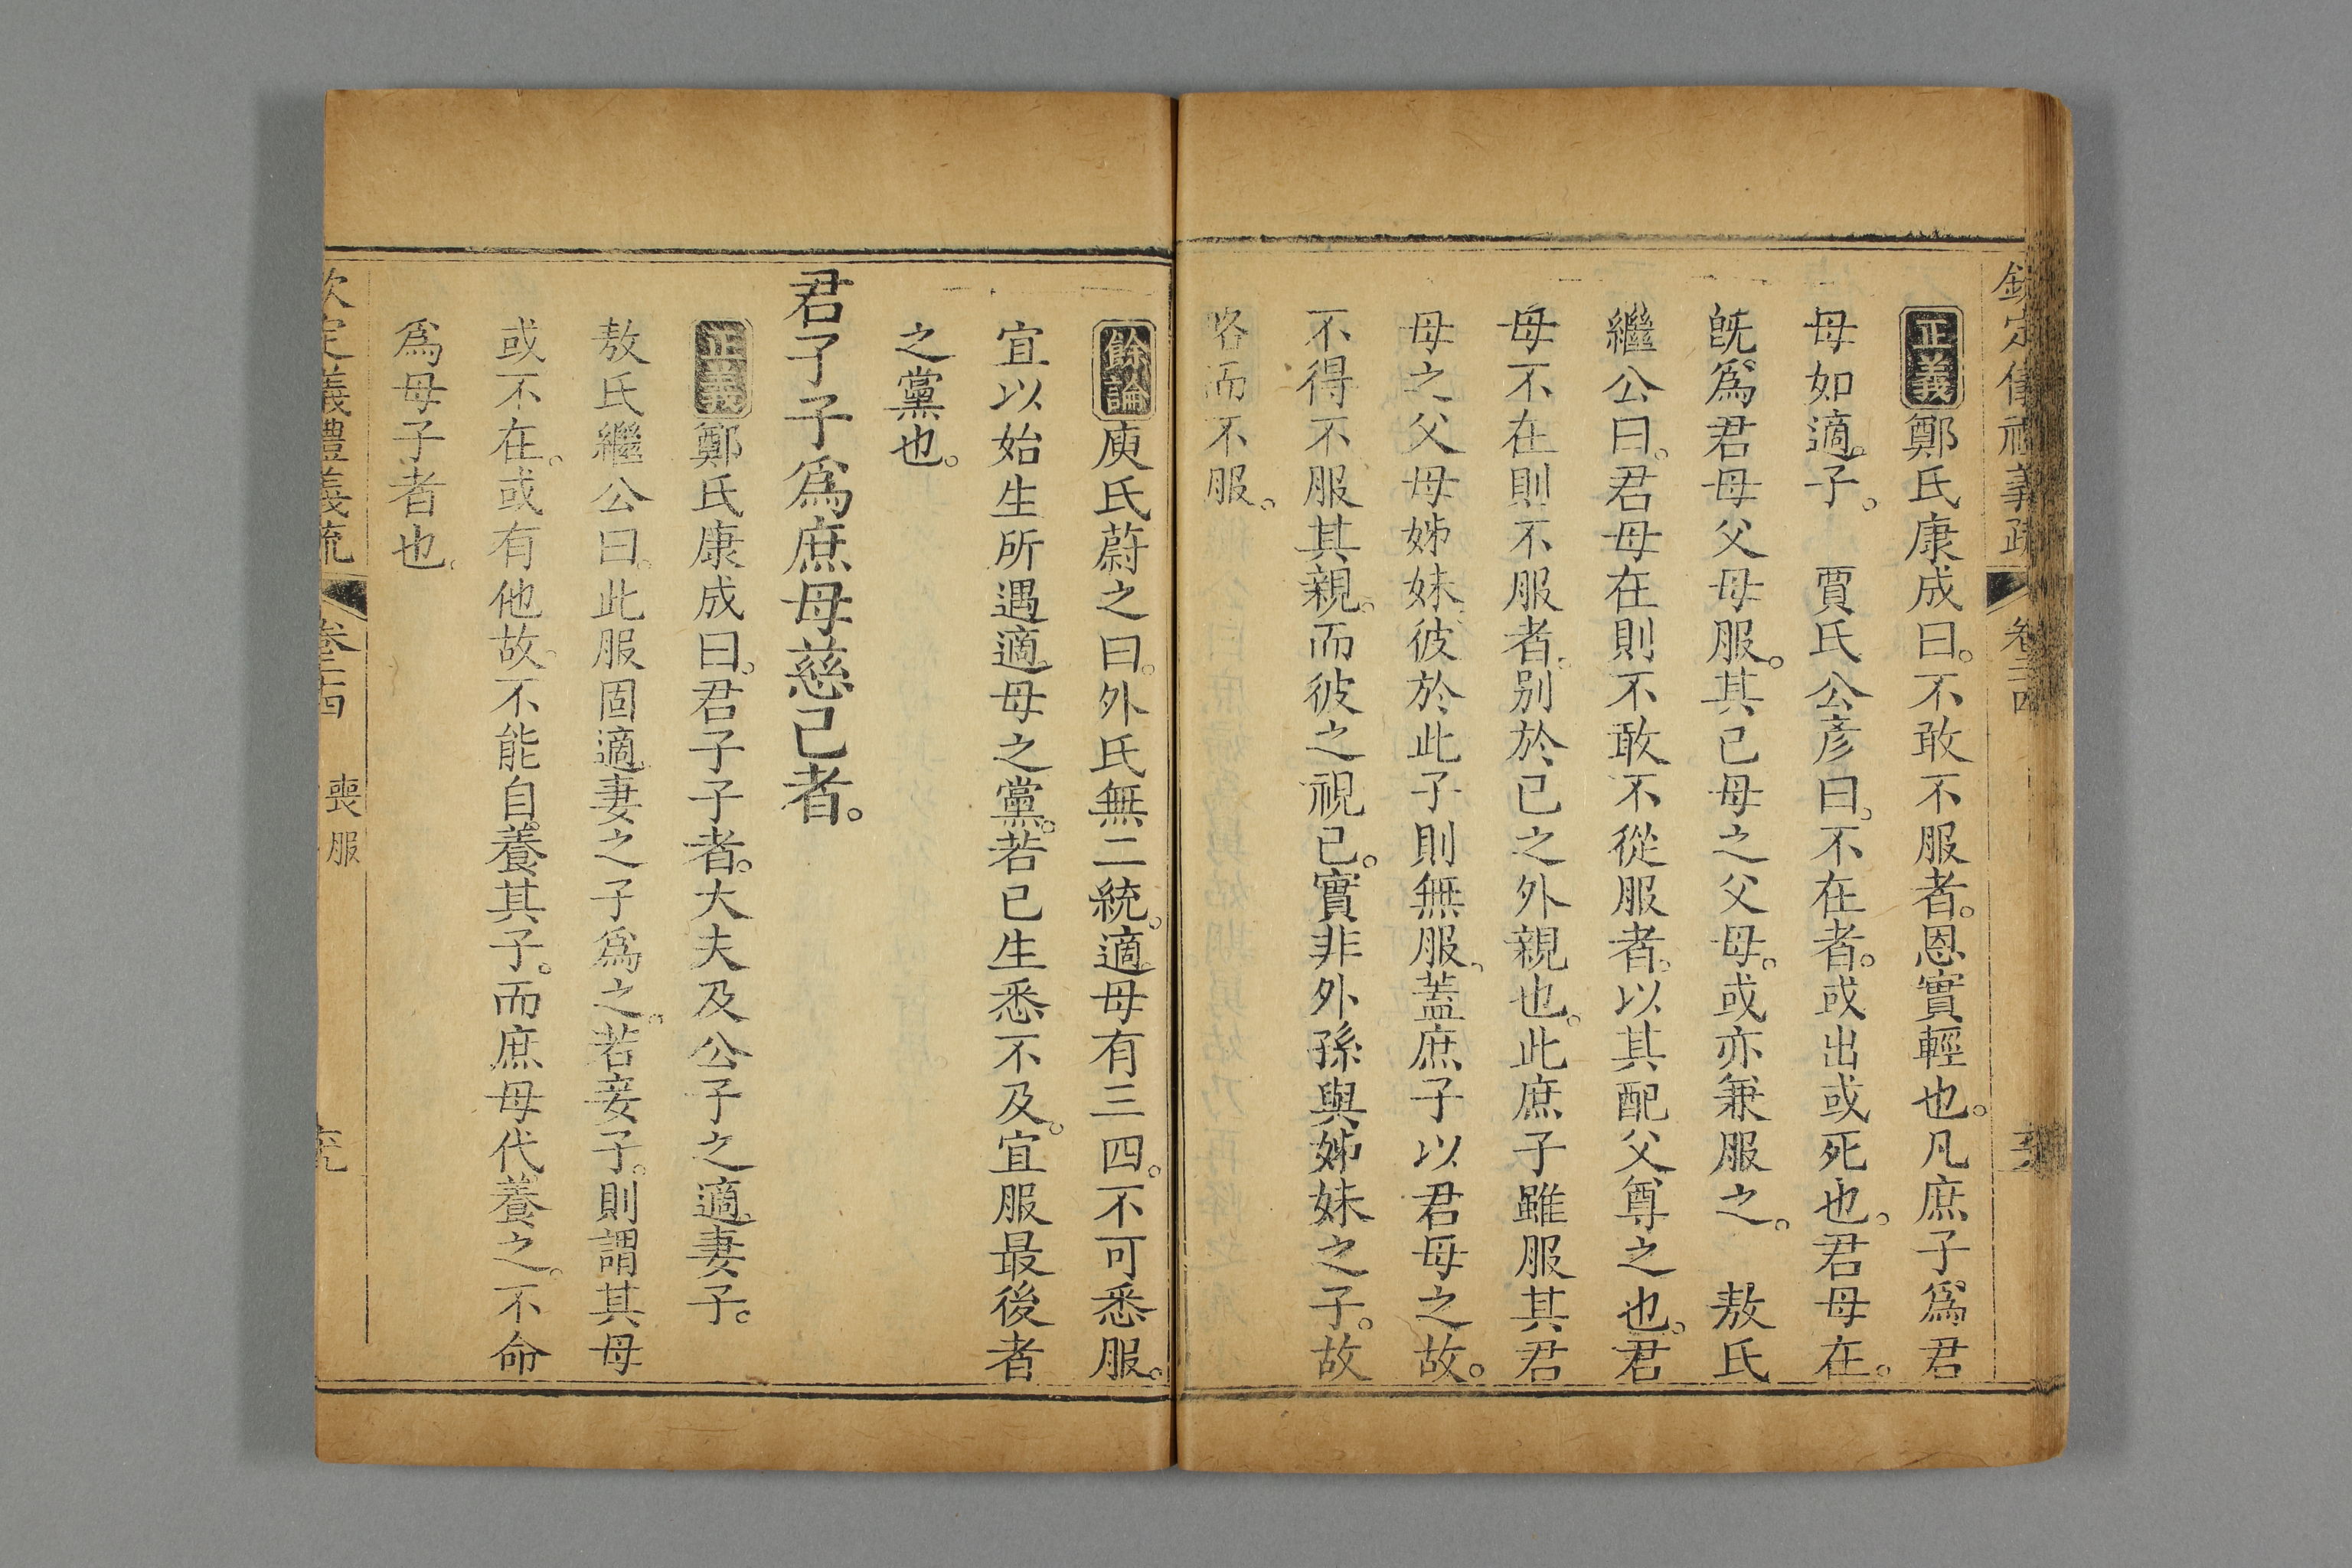 欽定儀禮義疏 卷二四
正義鄭氏康成曰。不敢不服者。恩實輕也。凡庶子爲君
母如適子。 賈氏公彥曰。不在者。或出或死也。君母在。
旣爲君母父母服。其己母之父母。或亦兼服之。 敖氏
繼公曰。君母在則不敢不從服者。以其配父尊之也。君
母不在則不服者。别於己之外親也。此庶子雖服其君
母之父母姊妹。彼於此子則無服。蓋庶子以君母之故。
不得不服其親。而彼之視己。實非外孫與姊妹之子。故
略而不服。
餘論庾氏蔚之曰。外氏無二統。適母有三四。不可悉服。
宜以始生所遇適母之黨。若已生悉不及。宜服最後者
之黨也。
君子子爲庶母慈己者。
正義鄭氏康成曰。君子子者。大夫及公子之適妻子。
敖氏繼公曰。此服固適妻之子爲之。若妾子。則謂其母
或不在。或有他故。不能自養其子。而庶母代養之。不命
爲母子者也。
欽定義禮義疏 卷二四 喪服